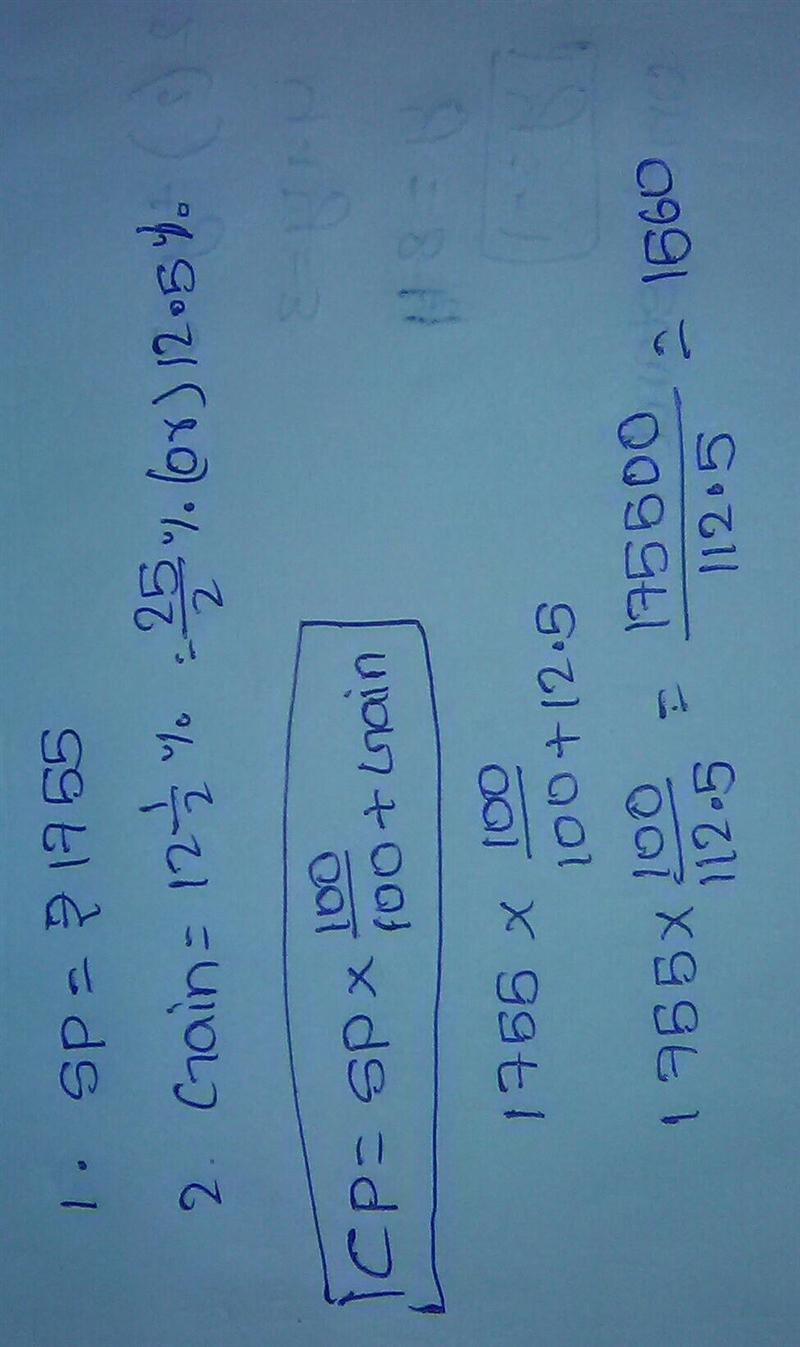 1. SP = ₹ 1755
2. Gain = 12 1/2 % = 25/2 % (or) 12.5 %
CP = SP x 100/100 + Gain
1755 x 100/100 + 12.5
1755 x 100/112.5 = 175500/112.5 = 1560